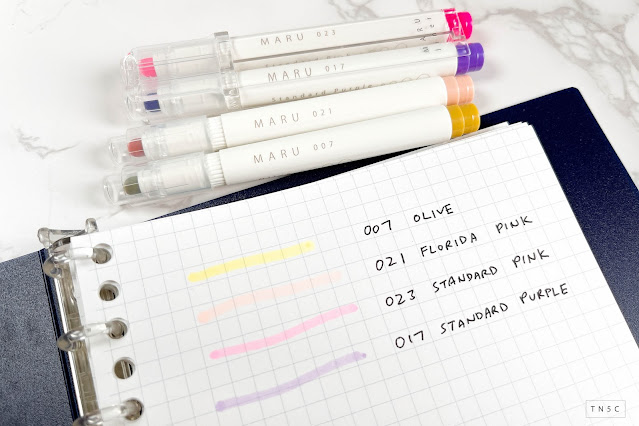 MARU 023
MARU
021
MARU 017
Standard Purple
MARU 021
MARU 007
007 OLIVE
021 FLORIDA PINK
023 STANDARD PINK
017 STANDARD PURPLE
TN5C